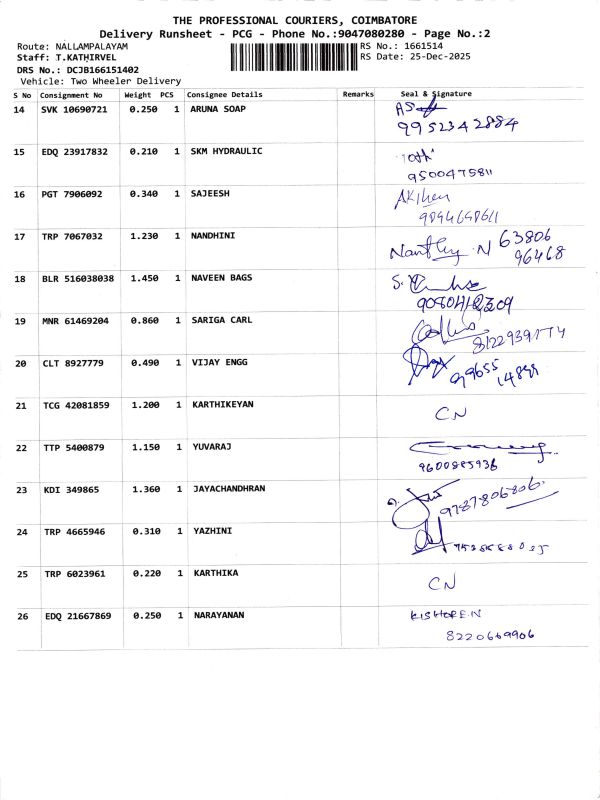 THE PROFESSIONAL COURIERS, COIMBATORE
Delivery Runsheet - PCG - Phone No.:9047080280 - Page No.:2
Route: NALLAMPALAYAM RS No.: 1661514
Staff: T.KATHIRVEL RS Date: 25-Dec-2025
DRS No.: DCJB166151402
Vehicle: Two Wheeler Delivery
S No Consignment No Weight PCS Consignee Details Remarks Seal & Signature
14 SVK 10690721 0.250 1 ARUNA SOAP
9952342884
15 EDQ 23917832 0.210 1 SKM HYDRAULIC
9500475811
16 PGT 7906092 0.340 1 SAJEESH
17 TRP 7067032 1.230 1 NANDHINI
63806
96468
18 BLR 516038038 1.450 1 NAVEEN BAGS
19 MNR 61469204 0.860 1 SARIGA CARL
20 CLT 8927779 0.490 1 VIJAY ENGG
21 TCG 42081859 1.200 1 KARTHIKEYAN
CN
22 TTP 5400879 1.150 1 YUVARAJ
9600885936
23 KDI 349865 1.360 1 JAYACHANDHRAN
9787806806
24 TRP 4665946 0.310 1 YAZHINI
25 TRP 6023961 0.220 1 KARTHIKA
CN
26 EDQ 21667869 0.250 1 NARAYANAN
KISHORE.N
8220669906